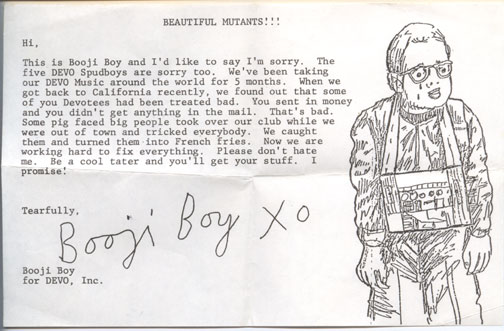 BEAUTIFUL MUTANTS!!!
Hi,
This is Booji Boy and I'd like to say I'm sorry. The
five DEVO Spudboys are sorry too. We've been taking
our DEVO Music around the world for 5 months. When we
got back to California recently, we found out that some
of you Devotees had been treated bad. You sent in money
and you didn't get anything in the mail. That's bad.
Some pig faced big people took over our club while we
were out of town and tricked everybody. We caught
them and turned them into French fries. Now we are
working hard to fix everything. Please don't hate
me. Be a cool tater and you'll get your stuff. I
promise!
Tearfully,
Booji Boy XO
Booji Boy
for DEVO, Inc.